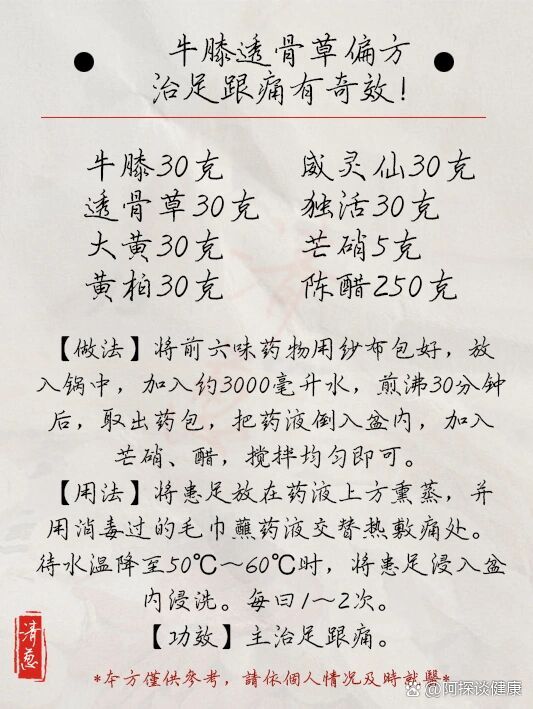 牛膝透骨草偏方
治足跟痛有奇效！
牛膝30克
威灵仙30克
透骨草30克
独活30克
大黄30克
芒硝5克
黄柏30克
陈醋250克
【做法】将前六味药物用纱布包好，放
入锅中，加入约3000毫升水，煎沸30分钟
后，取出药包，把药液倒入盆内，加入
芒硝、醋，搅拌均匀即可。
【用法】将患足放在药液上方熏蒸，并
用消毒过的毛巾蘸药液交替热敷痛处。
待水温降至50℃～60℃时，将患足浸入盆
内浸洗。每日1～2次。
【功效】主治足跟痛。
清葱
*本方僅供參考，請依個人情况及時就醫*
@阿探谈健康